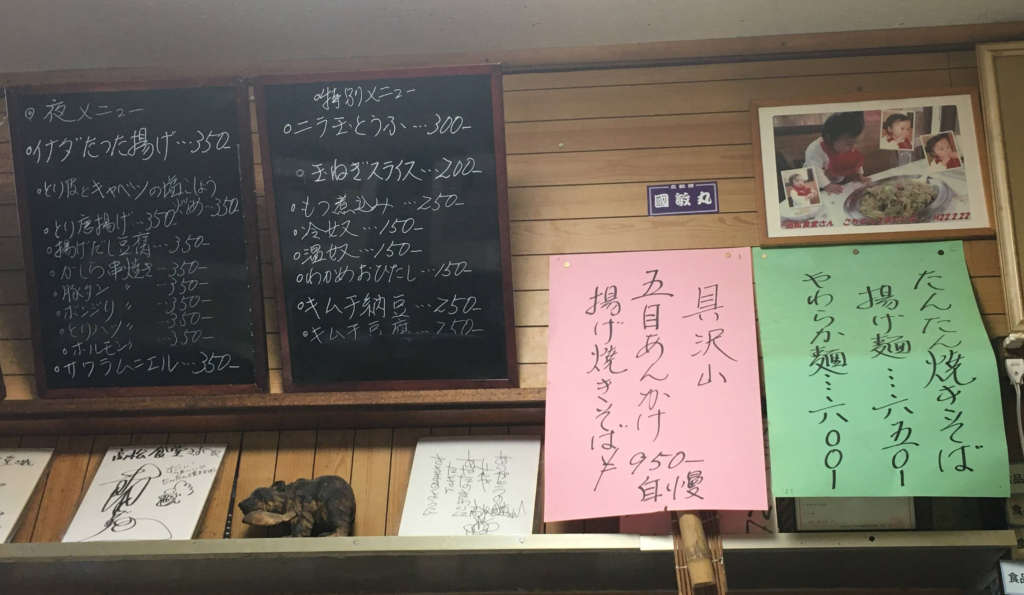 ◎夜メニュー
・イナダたつた揚げ…350-
・とり皮とキャベツの塩こしょう
どめ…350
・とり唐揚げ…350-
・揚げだし豆腐…350-
・かしら串焼き…350-
・豚タン 〃 …350-
・ボンジリ 〃 …350-
・とりハツ 〃 …350-
・ホルモン 〃 …350-
・サワラムニエル…350-
○特別メニュー
○ニラ玉とうふ…300-
○玉ねぎスライス…200-
○もつ煮込み…250-
○冷奴…150-
○温奴…150-
○わかめおひたし…150-
○キムチ納豆…250-
○キムチ豆腐…250-
國敏丸
高松食堂さん
H22.2.22
具沢山
五目あんかけ
揚げ焼きそば
950-
自慢
たんたん焼きそば
揚げ麺…六五〇-
やわらか麺…六〇〇-
高松食堂さん江
食品